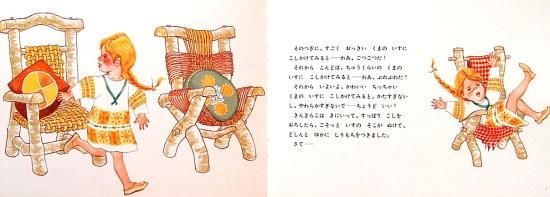 そのつぎに、すごく おっきい くまの いすに
こしかけてみると——わあ、ごつごつだ！
それから こんどは、ちゅうくらいの くまの
いすに こしかけてみると——わあ、ぶわぶわだ！
それから いよいよ、かわいい ちっちゃい
くまの いすに こしかけてみると、かたすぎない
し、やわらかすぎないで——ちょうど いい！
きんきらこは きにいって、すっぽり こしを
おろしたら、ごそっと いすの そこが ぬけて、
どしんと ゆかに しりもちを つきました。
さて——